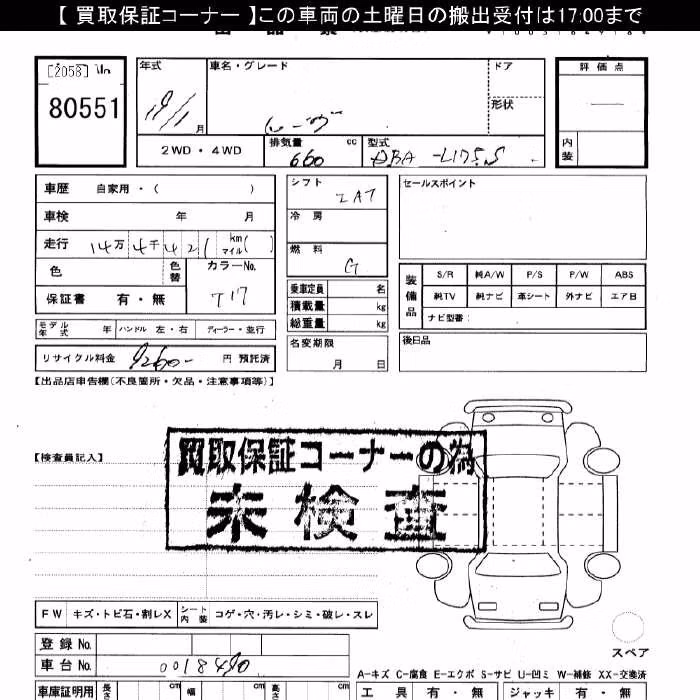 【 買取保証コーナー 】この車両の土曜日の搬出受付は17:00まで
[2058]
80551
年式
月
車名・グレード
ドア
形状
2WD・4WD
排気量 660 cc
型式 DBA-L175S
評価点
内装
車歴 自家用・( )
車検 年 月
走行 14万4千421 km マイル( )
色
色替
カラーNo.
T17
保証書 有・無
モデル年式 年 ハンドル 左・右 ディーラー・並行
リサイクル料金 9260- 円 預託済
シフト
IAT
冷房
燃料
G
乗車定員 名
積載量 kg
総重量 kg
名変期限
月 日
セールスポイント
装備品
S/R 純A/W P/S P/W ABS
純TV 純ナビ 革シート 外ナビ エアB
ナビ型番:
後日品
【出品店申告欄(不良箇所・欠品・注意事項等)】
【検査員記入】
買取保証コーナーの為
未検査
FW キズ・トビ石・割レX
シート内装 コゲ・穴・汚レ・シミ・破レ・スレ
スペア
登録 No.
車台 No. 0018490
車庫証明用 長さ cm 幅 cm 高さ cm
A-キズ C-腐食 E-エクボ S-サビ U-凹ミ W-補修 XX-交換済
工具 有・無 ジャッキ 有・無